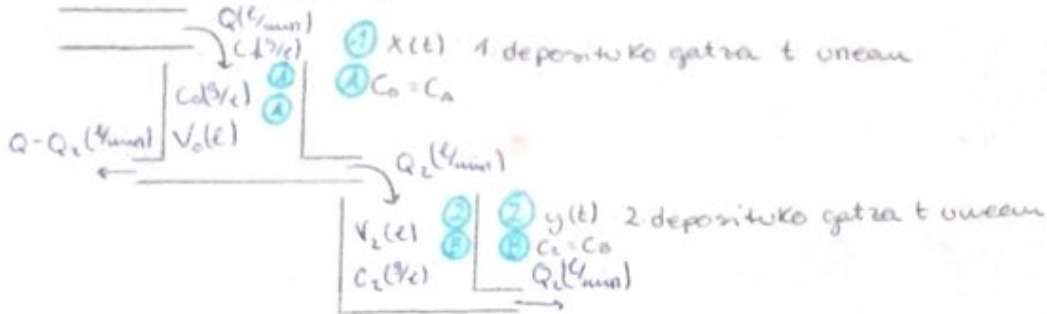 Q(ℓ/min)
C(g/ℓ)
① x(t) 1. deposituko gatza t unean
C₀(g/ℓ) ① Ⓐ
Ⓐ C₀ = C_A
Q-Q₂(ℓ/min) V₀(ℓ)
Q₂(ℓ/min)
V₂(ℓ) ② ② y(t) 2. deposituko gatza t unean
C₂(g/ℓ) Ⓑ Ⓑ C₂ = C_B
Q₂(ℓ/min)